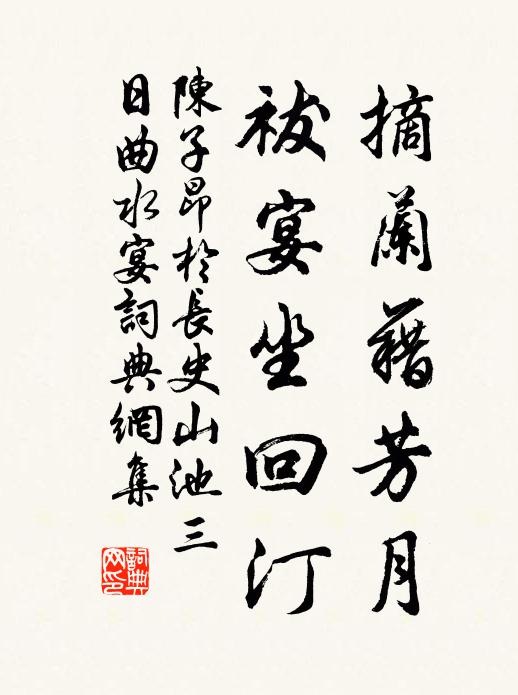 摘蘭藉芳月
祓宴坐回汀
陳子昂於長史山池三
日曲水宴詞典網集
詞典
网印